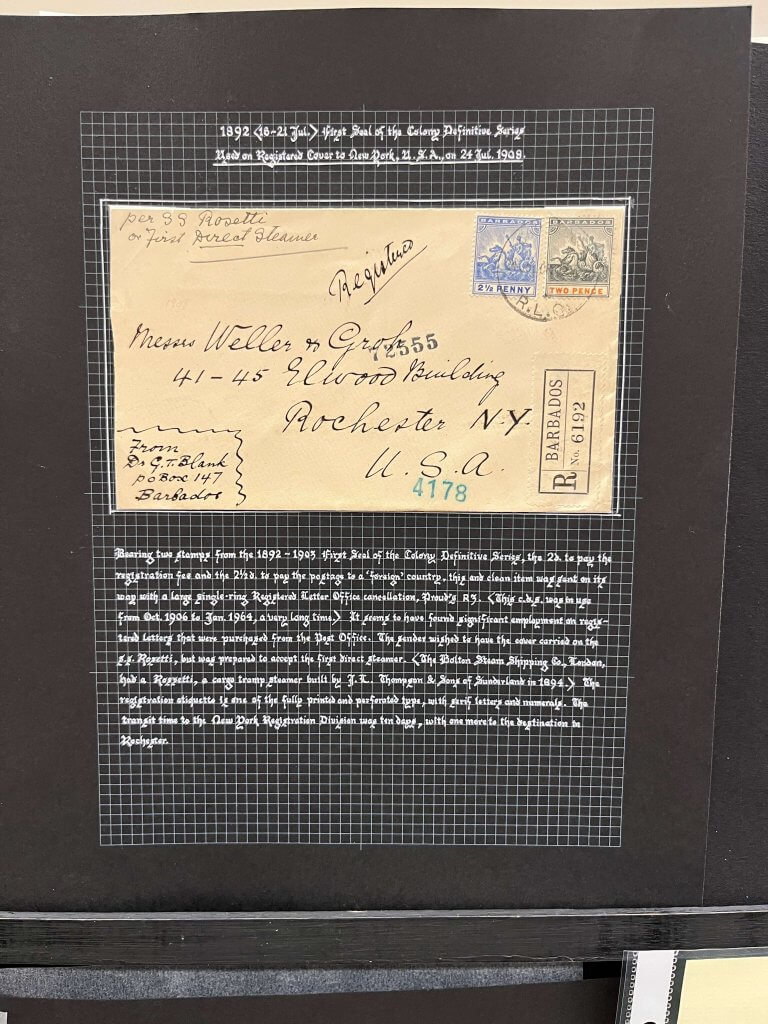 1892 (18-21 Jul.) First Seal of the Colony Definitive Series
Used on Registered Cover to New York, U.S.A., on 24 Jul. 1908.
per SS Rosetti
or First Direct Steamer
Registered
BARBADOS
2½ PENNY
BARBADOS
TWO PENCE
R.L.O.
Messrs Weller & Groh
72555
41-45 Elwood Building
Rochester N.Y.
U.S.A.
4178
From
Dr G.T. Blank
PO Box 147
Barbados
R BARBADOS
No. 6192
Bearing two stamps from the 1892-1903 First Seal of the Colony Definitive Series, the 2d. to pay the
registration fee and the 2½d. to pay the postage to a 'foreign' country, this and clean item was sent on its
way with a large single-ring Registered Letter Office cancellation, Proud's R3. (This c.d.s. was in use
from Oct. 1906 to Jan. 1964, a very long time.) It seems to have found significant employment on regis-
tered letters that were purchased from the Post Office. The sender wished to have the cover carried on the
s.s. Rosetti, but was prepared to accept the first direct steamer. (The Bolton Steam Shipping Co., London,
had a Rossetti, a cargo tramp steamer built by J.L. Thompson & Sons of Sunderland in 1894.) The
registration etiquette is one of the fully printed and perforated type, with serif letters and numerals. The
transit time to the New York Registration Division was ten days, with one more to the destination in
Rochester.